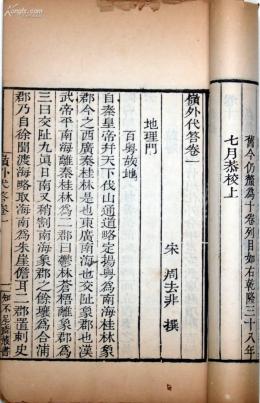 舊今仍釐為十卷列目如右乾隆三十八年
七月恭校上
嶺外代答卷一
宋 周去非 撰
地理門
百粤故地
自秦皇帝幷天下伐山通道略定揚粤為南海桂林象
郡今之西廣秦桂林是也東廣南海也交趾象郡也漢
武帝平南海離秦桂林為二郡曰鬱林蒼梧離象郡為
三曰交趾九真日南又稍割南海象郡之餘壤為合浦
郡乃自徐聞渡海略取海南為朱崖儋耳二郡置刺史
嶺外代答卷一
一
知不足齋叢書